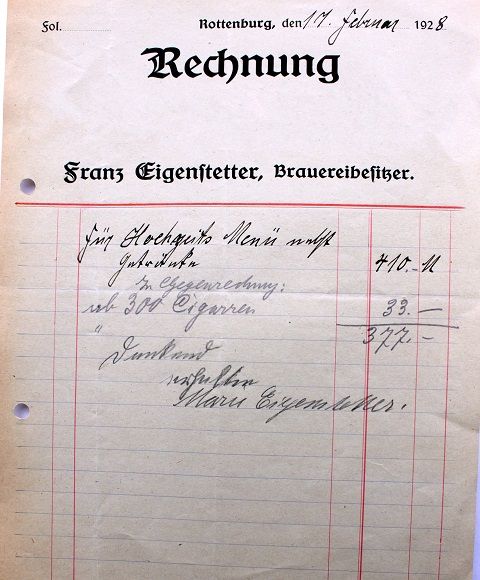 Fol.
Rottenburg, den 17. Februar 1928
Rechnung
Franz Eigenstetter, Brauereibesitzer.
für Hochzeits Menü nebst
Getränke 410.- M
In Gegenrechnung:
ab 300 Cigarren 33.—
" 377.—
Dankend
erhalten
Marie Eigenstetter.